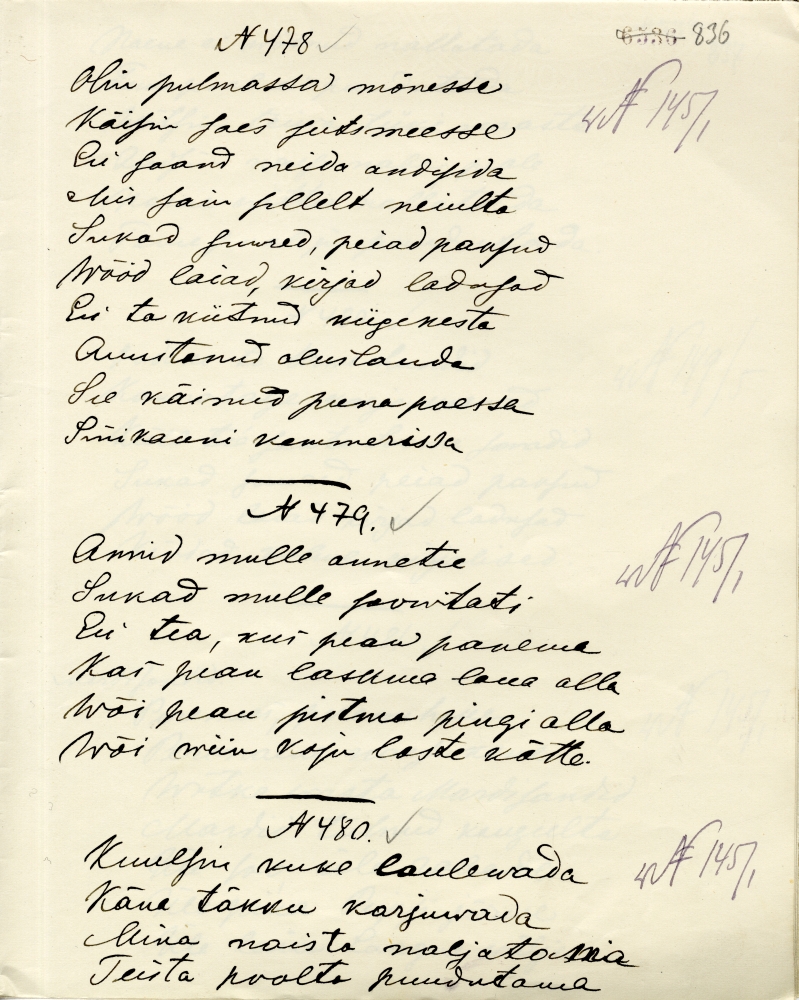 № 478 ✓
6536 836
Olin pulmassa mönesse
w № 145/1
Käisin saes seitsmeesse
Ei saand neida andisida
Mis sain sellelt neiulta
Sukad suured, peiad paksud
Wööd laiad, kirjad ladusad
Ei ta kiitnud kiigekesta
Auustanud oluslauda
See käinud puna poessa
Sinikauni kammerissa
№ 479. ✓
Annid mulle annetie
w № 145/1
Sukad mulle soowitati
Ei tea, kus pean panema
Kas pean laskma laua alla
Wõi pean pistma pingi alla
Wõi wiin koju laste kätte.
№ 480. ✓
Kuulsin kuke laulewada
w № 145/1
Käna täkku karjuwada
Mina naista naljatama
Teista poolta puudutama